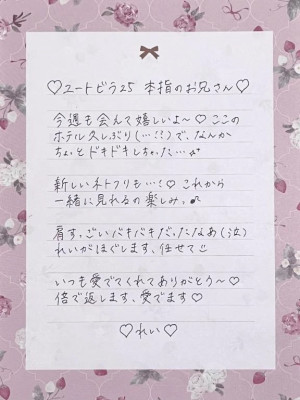 ♡ユートピラ25 本指のお兄さん♡
今週も会えて嬉しいよ〜♡ ここの
ホテル久しぶり(…!?)で、なんか
ちょっとドキドキしちゃった…
新しいネトフリも…!♡ これから
一緒に見れるの楽しみっ♪
肩すっごいバキバキだったなあ(泣)
れいがほぐします、任せて
いつも愛でてくれてありがとう〜♡
倍で返します、愛でます♡
♡れい♡